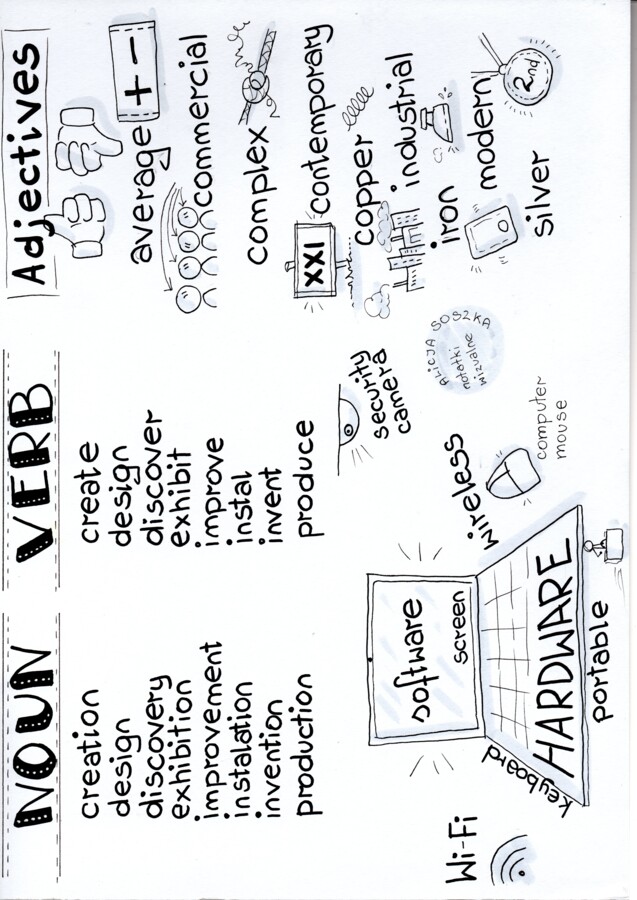 NOUN
creation
design
discovery
exhibition
improvement
instalation
invention
production
VERB
create
design
discover
exhibit
improve
instal
invent
produce
Adjectives
+ -
average
commercial
complex
contemporary
XXI
copper
industrial
iron
modern
silver
2nd
Wi-Fi
software
screen
keyboard
HARDWARE
portable
wireless
computer
mouse
security
camera
ALICJA SOSZKA
notatki
wizualne